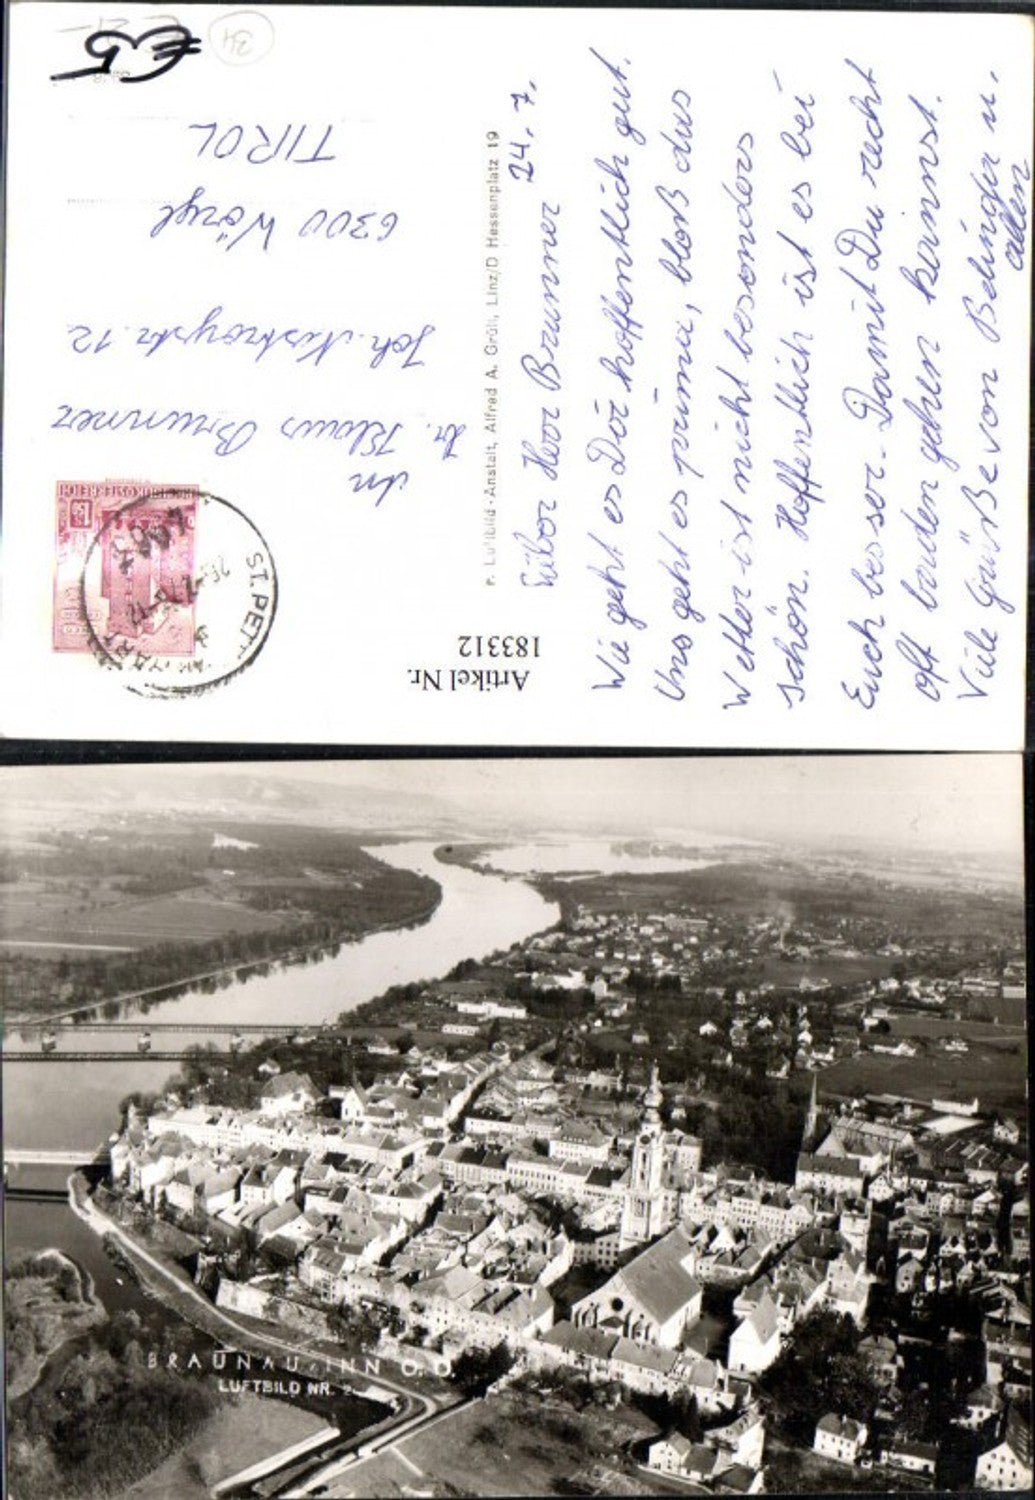 €5
34
An
Hr. Klaus Brunner
Joh. Nestroystr. 12
6300 Wörgl
TIROL
REPUBLIK ÖSTERREICH
1.50
ST. PET
HART
P. Luftbild-Anstalt, Alfred A. Grüll, Linz/D Hessenplatz 19
Artikel Nr.
183312
24. 7.
Lieber Herr Brunner
Wie geht es Dir hoffentlich gut.
Uns geht es prima, bloß das
Wetter ist nicht besonders
schön. Hoffentlich ist es bei
Euch besser. Damit Du recht
oft baden gehen kannst.
Viele Grüße von Belinda u.
allen
BRAUNAU, INN O.Ö.
LUFTBILD NR. 2